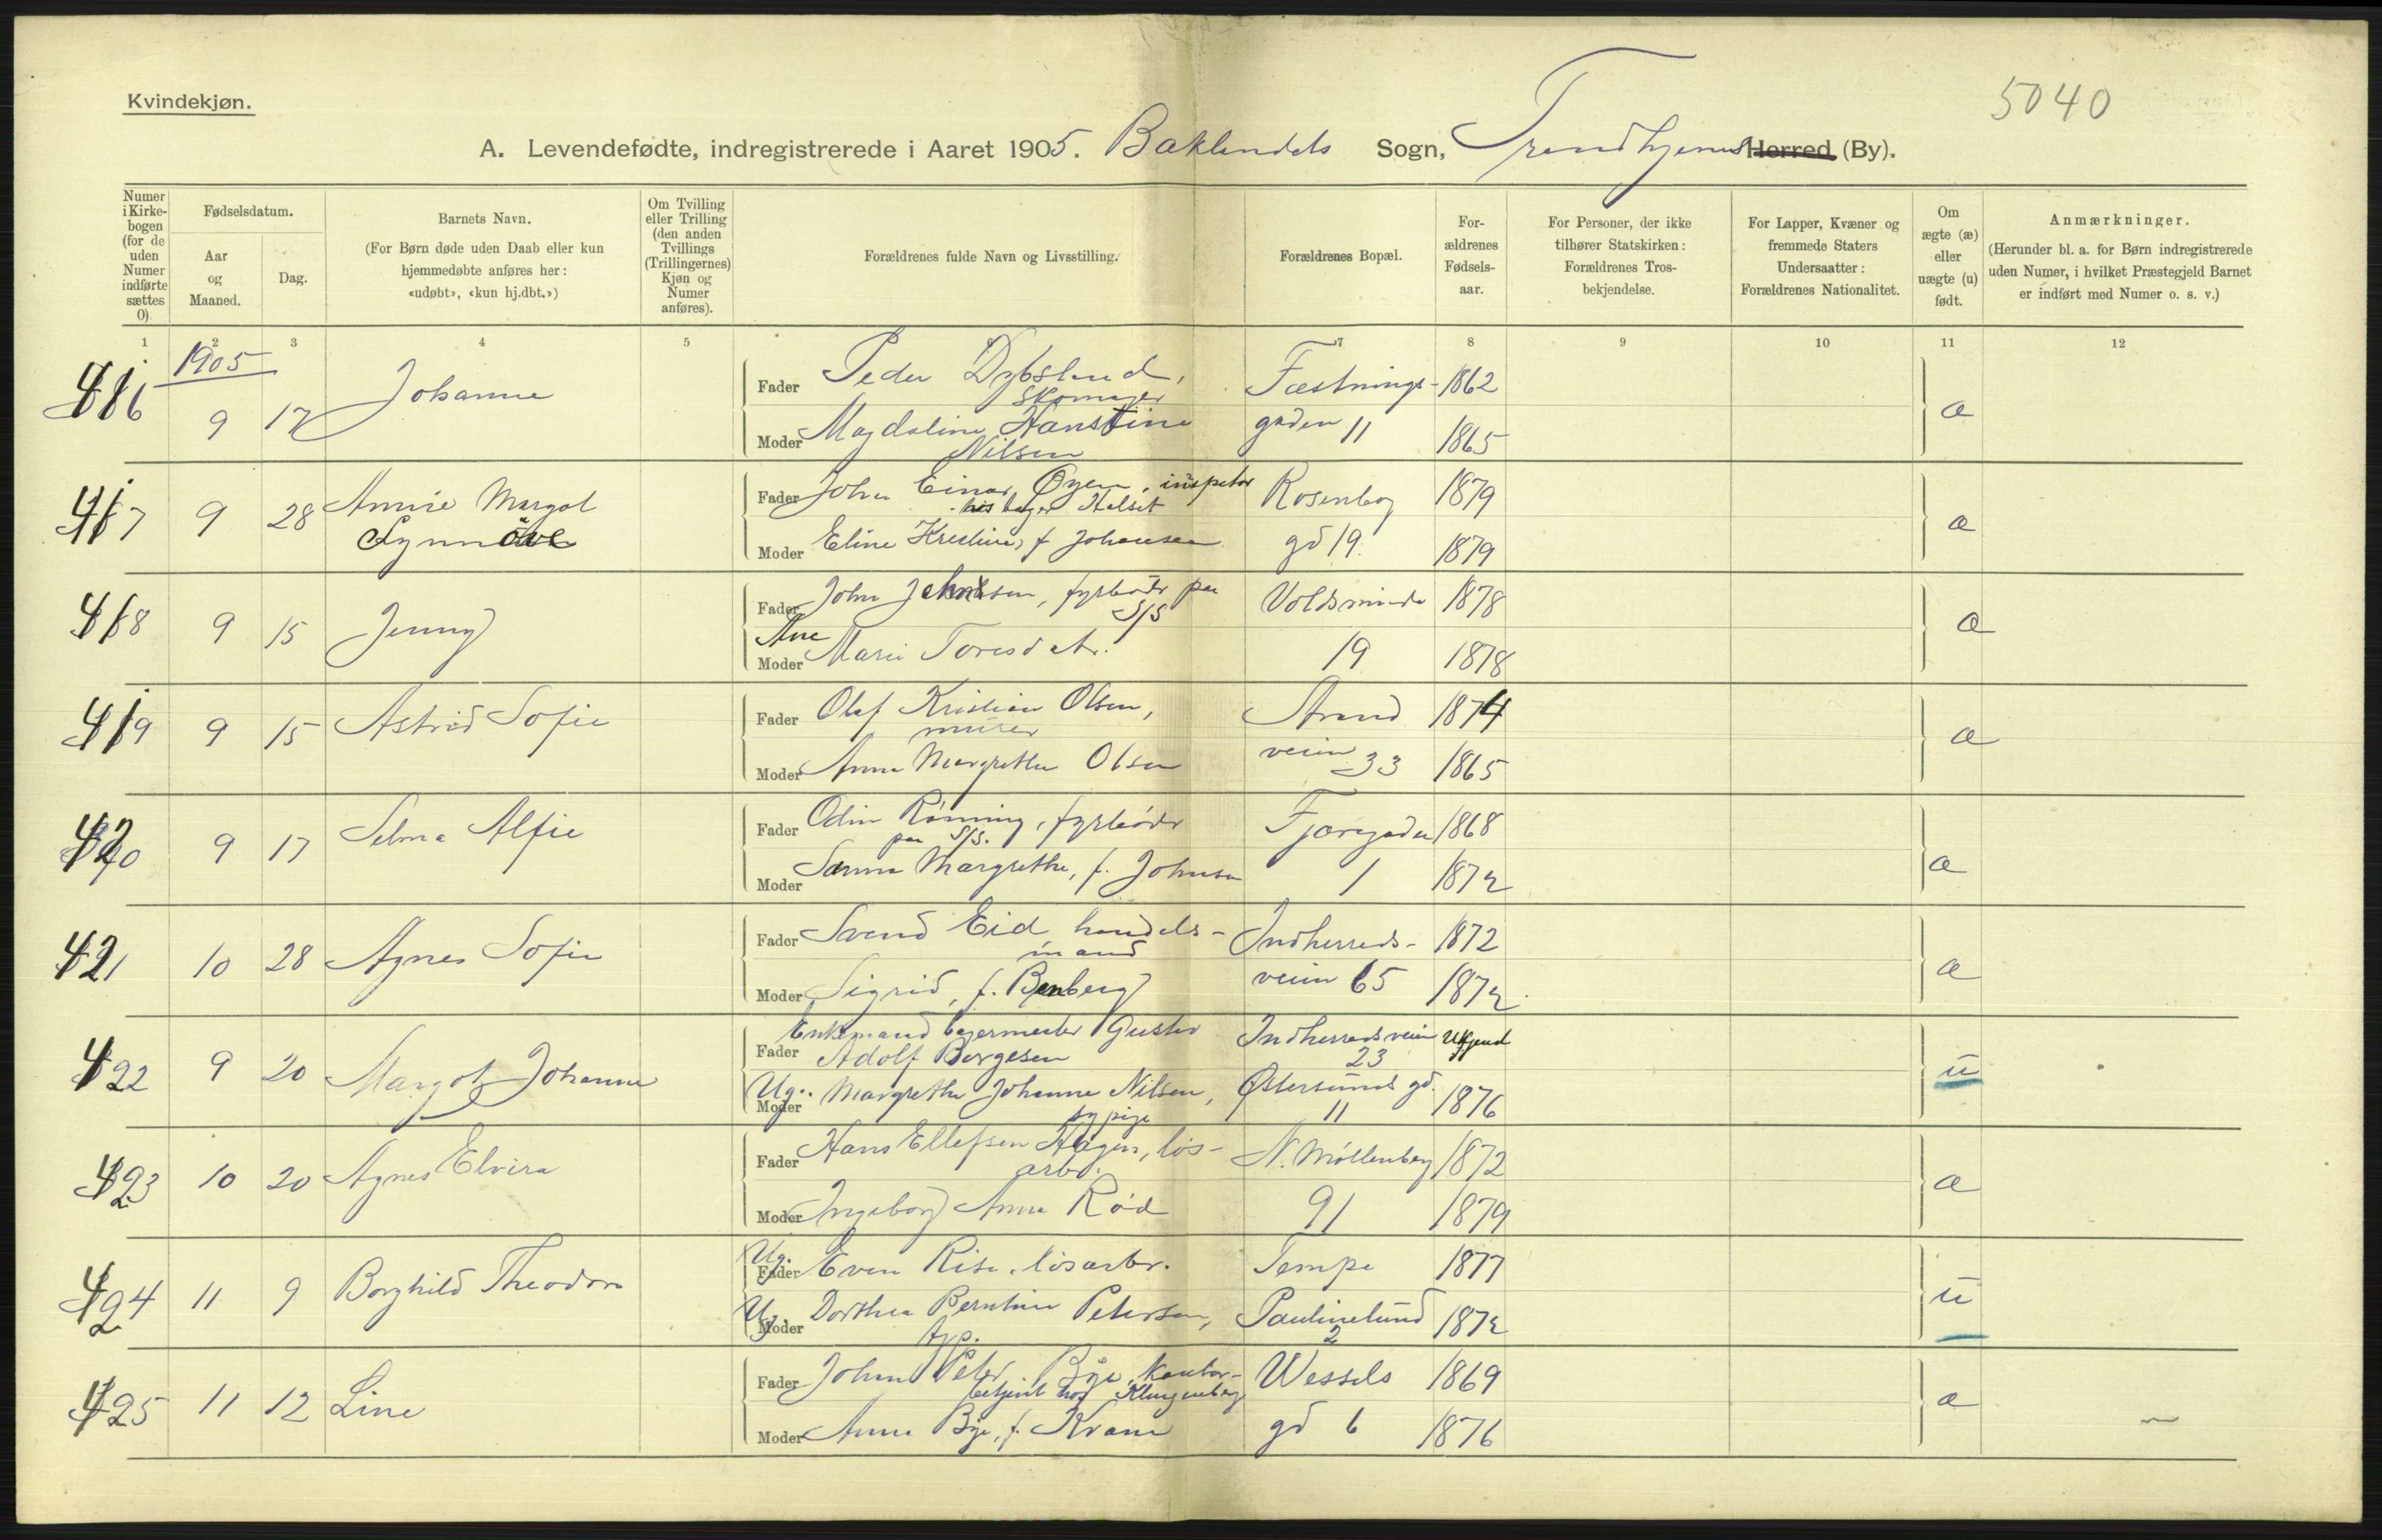 Kvindekjøn.
5040
A. Levendefødte, indregistrerede i Aaret 1905. Baklandets Sogn, Trondhjems Herred (By).
Numer i Kirkebogen (for de uden Numer indførte sættes 0).
Fødselsdatum.
Aar og Maaned.
Dag.
Barnets Navn.
(For Børn døde uden Daab eller kun hjemmedøbte anføres her: «udøbt», «kun hj.dbt.»)
Om Tvilling eller Trilling (den anden Tvillings (Trillingernes) Kjøn og Numer anføres).
Forældrenes fulde Navn og Livsstilling.
Forældrenes Bopæl.
Forældrenes Fødselsaar.
For Personer, der ikke tilhører Statskirken: Forældrenes Trosbekjendelse.
For Lapper, Kvæner og fremmede Staters Undersaatter: Forældrenes Nationalitet.
Om ægte (æ) eller uægte (u) født.
Anmærkninger.
(Herunder bl. a. for Børn indregistrerede uden Numer, i hvilket Præstegjeld Barnet er indført med Numer o. s. v.)
1 2 3 4 5 7 8 9 10 11 12
1905
416 9 17 Johanne Fader Peder Fæstnings- 1862 æ
Skomager
Moder Magdaline Hanstine gaden 11 1865
Nilsen
417 9 28 Annie Margot Fader Johan Einar Øyen, inspektør Rosenborg 1879 æ
Synnöve Moder Eline Kristine, f Johansen gd 19. 1879
418 9 15 Jenny Fader John Johnsen, fyrbøder paa Voldsminde 1878 æ
S/S
Ane
Moder Marie Toresdatr. 19 1878
419 9 15 Astrid Sofie Fader Olaf Kristian Olsen, Strand 1874 æ
murer
Moder Anna Margrethe Olsen veien 33 1865
420 9 17 Selma Alfie Fader Odin Rønning, fyrbøder Fjæregaden 1868 æ
paa S/S.
Moder Sanna Margrethe, f. Johnsen 1 1872
421 10 28 Agnes Sofie Fader Svend Eid handels- Indherreds- 1872 æ
mand
Moder Sigrid, f. Benberg veien 65 1872.
422 9 20 Margot Johanne Enkemand bagermester Gustav Indherredsveien Ukjend u
Fader Adolf Borgesen 23
Ug. Moder Margrethe Johanne Nilsen, Østersunds gd. 1876
sypige 11
423 10 20 Agnes Elvira Fader Hans Ellefsen Hagen, løs- N. Møllenberg 1872 æ
arbr.
Moder Ingeborg Anna Rød 91 1879
424 11 9 Borghild Theodora Ug. Fader Even Risa, løsarbr. Tempe 1877 u
Ug. Moder Dorthea Berntine Petersen, Paulinelund 1872
typ. 2
425 11 12 Line Fader Johan Peter Bye, kontor- Wessels 1869 æ
betjent hos Klingenberg
Moder Anna Bye, f. Krane gd 6 1876